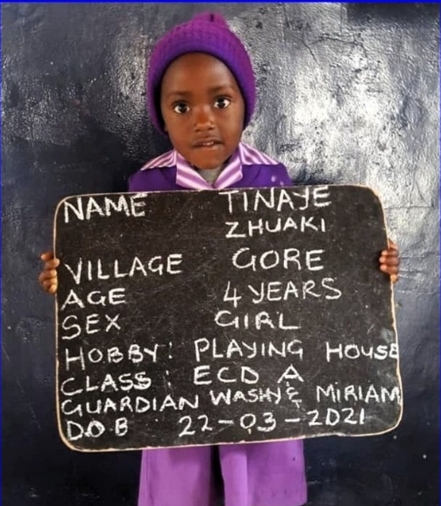 NAME TINAJE
ZHUAKI
VILLAGE GORE
AGE 4 YEARS
SEX GIRL
HOBBY: PLAYING HOUSE
CLASS: ECD A
GUARDIAN WASHY & MIRIAM
D.O.B 22-03-2021